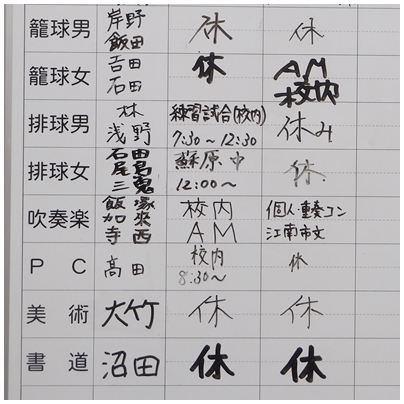 籠球男 岸野 休 休
飯田
籠球女 吉田 休 AM
石田 校内
排球男 林 練習試合(校内) 休み
浅野 7:30～12:30
排球女 石田 蘇原中 休
尾島 12:00～
三鬼
吹奏楽 飯塚 校内 個人・重奏コン
加来 AM 江南市文
寺西
PC 高田 校内 休
8:30～
美術 大竹 休 休
書道 沼田 休 休